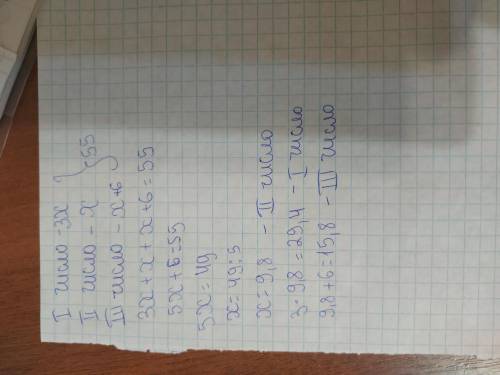 I число - 3x
II число - x } 55
III число - x+6
3x+x+x+6=55
5x+6=55
5x=49
x=49:5
x=9,8 - II число
3·9,8=29,4 - I число
9,8+6=15,8 - III число